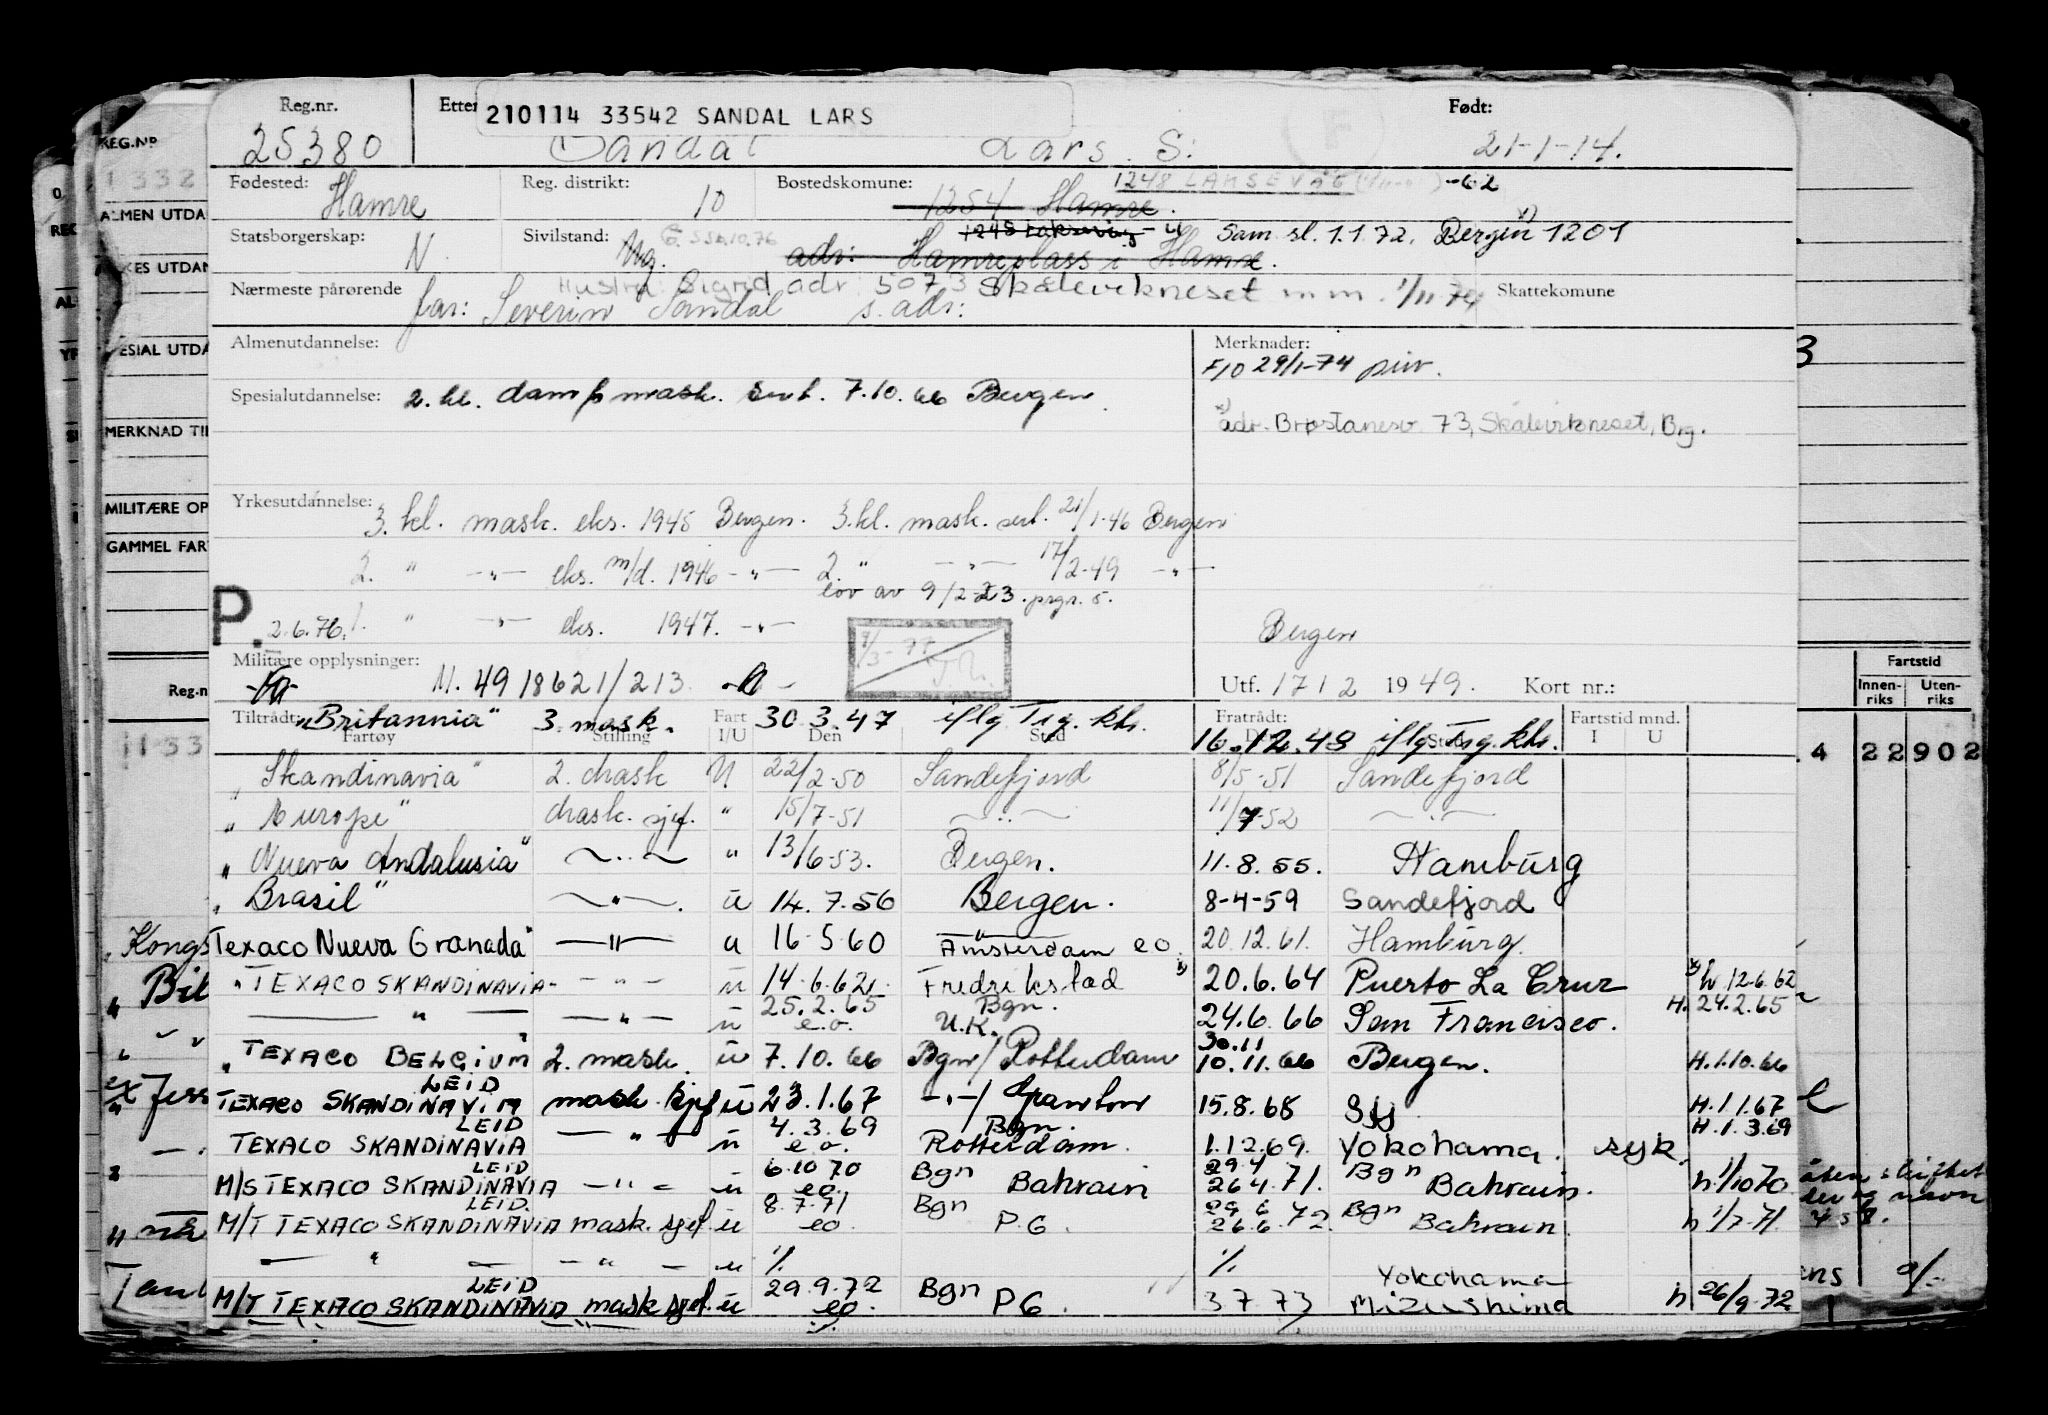 Reg.nr. Etter Født:
210114 33542 SANDAL LARS
25380 Sandal Lars S. 21-1-14.
Fødested: Hamre Reg. distrikt: 10 Bostedskommune: 1254 Hamre. 1248 LAKSEVÅG -62
Statsborgerskap: N Sivilstand: Ug. adr: Hamreplass i Hamre. Sam. sl. 1.1.72. Bergen 1201
Hustru: Sigrid adr 5073 Skålevikneset m m. 1/11 74
Nærmeste pårørende far: Severin Sandal s. adr: Skattekomune
Almenutdannelse: Merknader:
F10 29/1-74 puv.
Spesialutdannelse: 2. kl. dampmask. sert. 7.10.66 Bergen
adr. Brøstanesv. 73, Skålevikneset, Brg.
Yrkesutdannelse: 3. kl. mask. eks. 1945 Bergen. 3. kl. mask. sert. 21/1-46 Bergen
2. " -"- eks. m/d. 1946 -"- 2. " -"- 17/2-49 -"-
Lov av 9/2-23. prgr. 5.
P. 2.6.76. 1. " -"- eks. 1947. -"- Bergen
Militære opplysninger: M. 4918621/213.
Utf. 17 12 1949. Kort nr.:
Tiltrådt: Fratrådt: Fartstid mnd.
Fartøy Stilling Fart I/U Den Sted I U
"Britannia" 3. mask. 30.3.47 iflg. Trg. kh. 16.12.48 iflg. Trg. kh.
"Skandinavia" 2. mask U. 22/2-50 Sandefjord 8/5-51 Sandefjord
"Europe" mask. sjef. " 15/7-51 -"- 11/7-52 -"-
"Nueva Andalusia" -"- " 13/6-53. Bergen. 11.8.55. Hamburg
"Brasil" -"- u 14.7.56 Bergen. 8-4-59 Sandefjord
Texaco Nueva Granada" -"- u 16.5.60 Amsterdam eo. 20.12.61. Hamburg
"TEXACO SKANDINAVIA- -"- u 14.6.62. Fredrikstad 20.6.64 Puerto La Cruz h 12.6.62
-"- -"- u 25.2.65 e.o. Bgn. U.K. 24.6.66 San Francisco. H. 24.2.65
"TEXACO BELGIUM" 2. mask. u 7.10.66 Bgn/Rotterdam 30.11 10.11.66 Bergen. H.1.10.66
LEID
TEXACO SKANDINAVIA mask. sjef u 23.1.67 -"-/ 15.8.68 Sfj H.1.1.67
LEID
TEXACO SKANDINAVIA -"- u 4.3.69 e.o. Bgn. Rotterdam. 1.12.69. Yokohama. syk. H.1.3.69
LEID
M/S TEXACO SKANDINAVIA -"- u 6.10 70 eo. Bgn Bahrain 29.4 26.4.71. Bgn Bahrain. h. 1/10 70
LEID.
M/T TEXACO SKANDINAVIA mask. sjef. u 8.7.71 eo Bgn P.G. 29.6 26.6.72. Bgn Bahrain. h 1/7-71
-"- -"- u % %
LEID
M/T TEXACO SKANDINAVIA mask sjef. u 29.9.72 eo. Bgn PG. 3 7 73 Yokohama Mizushima h 26/9-72
REG.NR
1332
ALMEN UTDA
KES UTDAN
ESIAL UTDA
MERKNAD TIL
MILITÆRE OP
GAMMEL FAR
Reg.n
Kongs
Bil
ex Jess
Tank
3
Fartstid
Innen-riks Uten-riks
4 22902